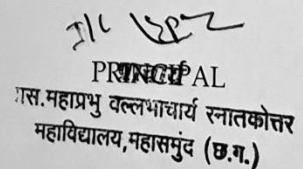 I/C
PRINCIPAL
शास.महाप्रभु वल्लभाचार्य स्नातकोत्तर
महाविद्यालय,महासमुंद (छ.ग.)